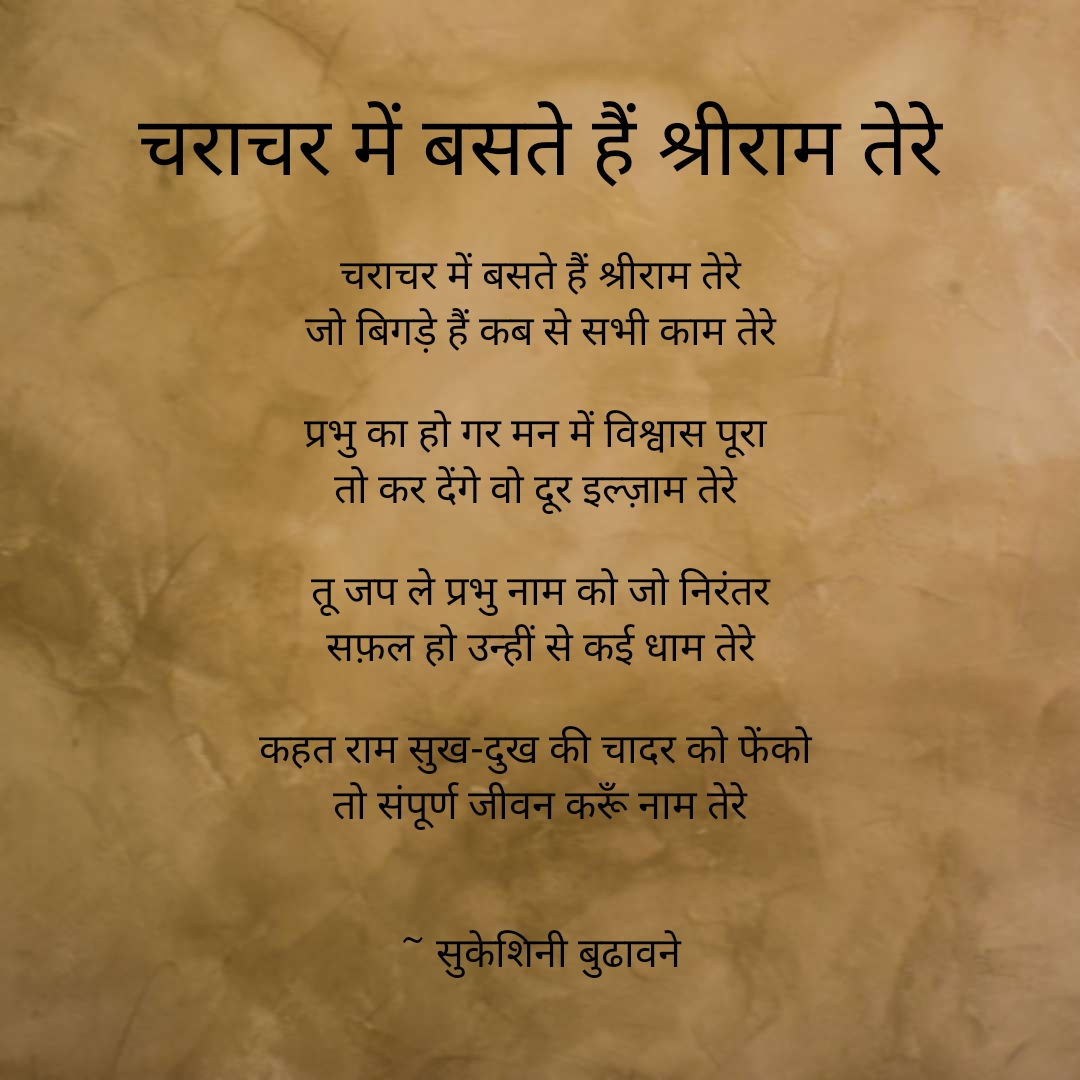 चराचर में बसते हैं श्रीराम तेरे
चराचर में बसते हैं श्रीराम तेरे
जो बिगड़े हैं कब से सभी काम तेरे
प्रभु का हो गर मन में विश्वास पूरा
तो कर देंगे वो दूर इल्ज़ाम तेरे
तू जप ले प्रभु नाम को जो निरंतर
सफ़ल हो उन्हीं से कई धाम तेरे
कहत राम सुख-दुख की चादर को फेंको
तो संपूर्ण जीवन करूँ नाम तेरे
~ सुकेशिनी बुढावने